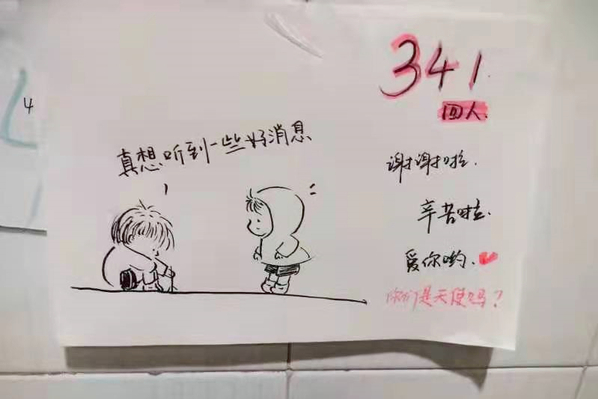 4
341
四人.
真想听到一些好消息
谢谢啦.
辛苦啦.
爱你哟.
你们是天使吗？